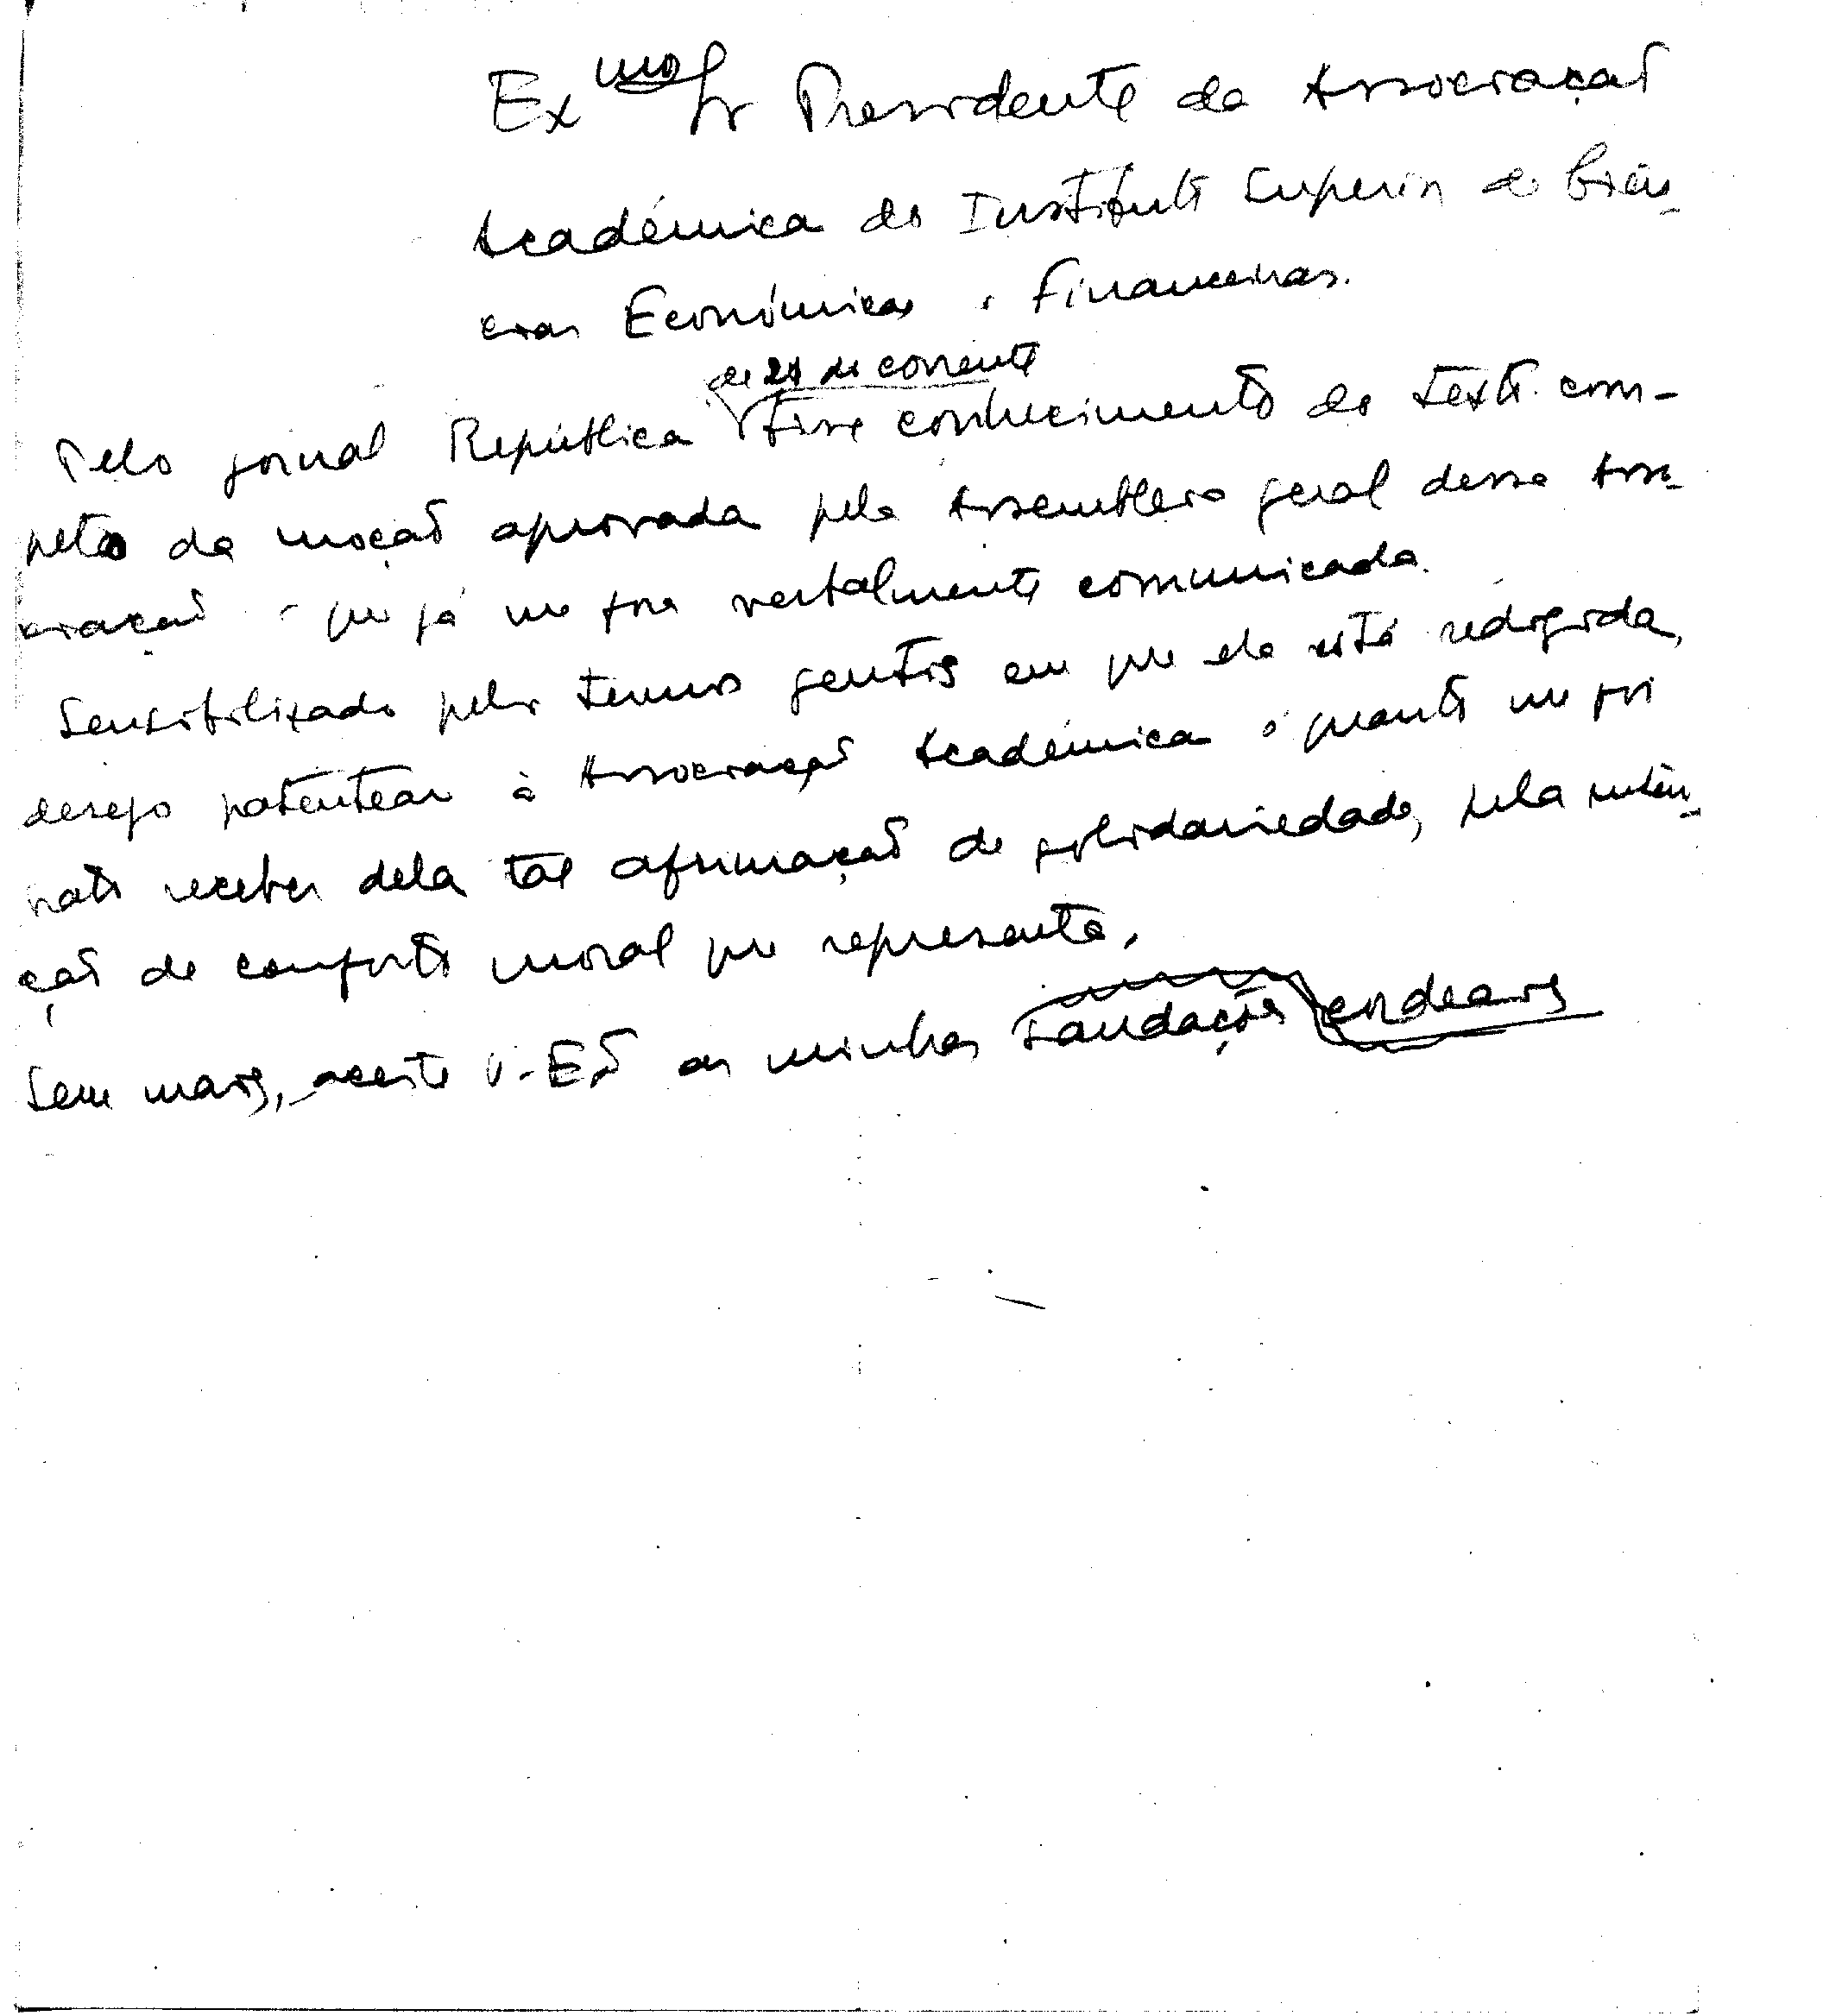 Ex.mo Sr Presidente da Associação
Académica do Instituto Superior de Ciên-
cias Económicas e Financeiras.
de 21 do corrente
Pelo jornal República tive conhecimento do texto com-
pleto da moção aprovada pela Assembleia geral dessa Asso-
ciação e que já me fora verbalmente comunicada.
Sensibilizado pelos termos gentis em que ela está redigida,
desejo patentear à Associação Académica quanto me foi
grato receber dela tal afirmação de solidariedade, pela inten-
ção de conforto moral que representa.
Sem mais, aceite V. Exª as minhas saudações cordeais